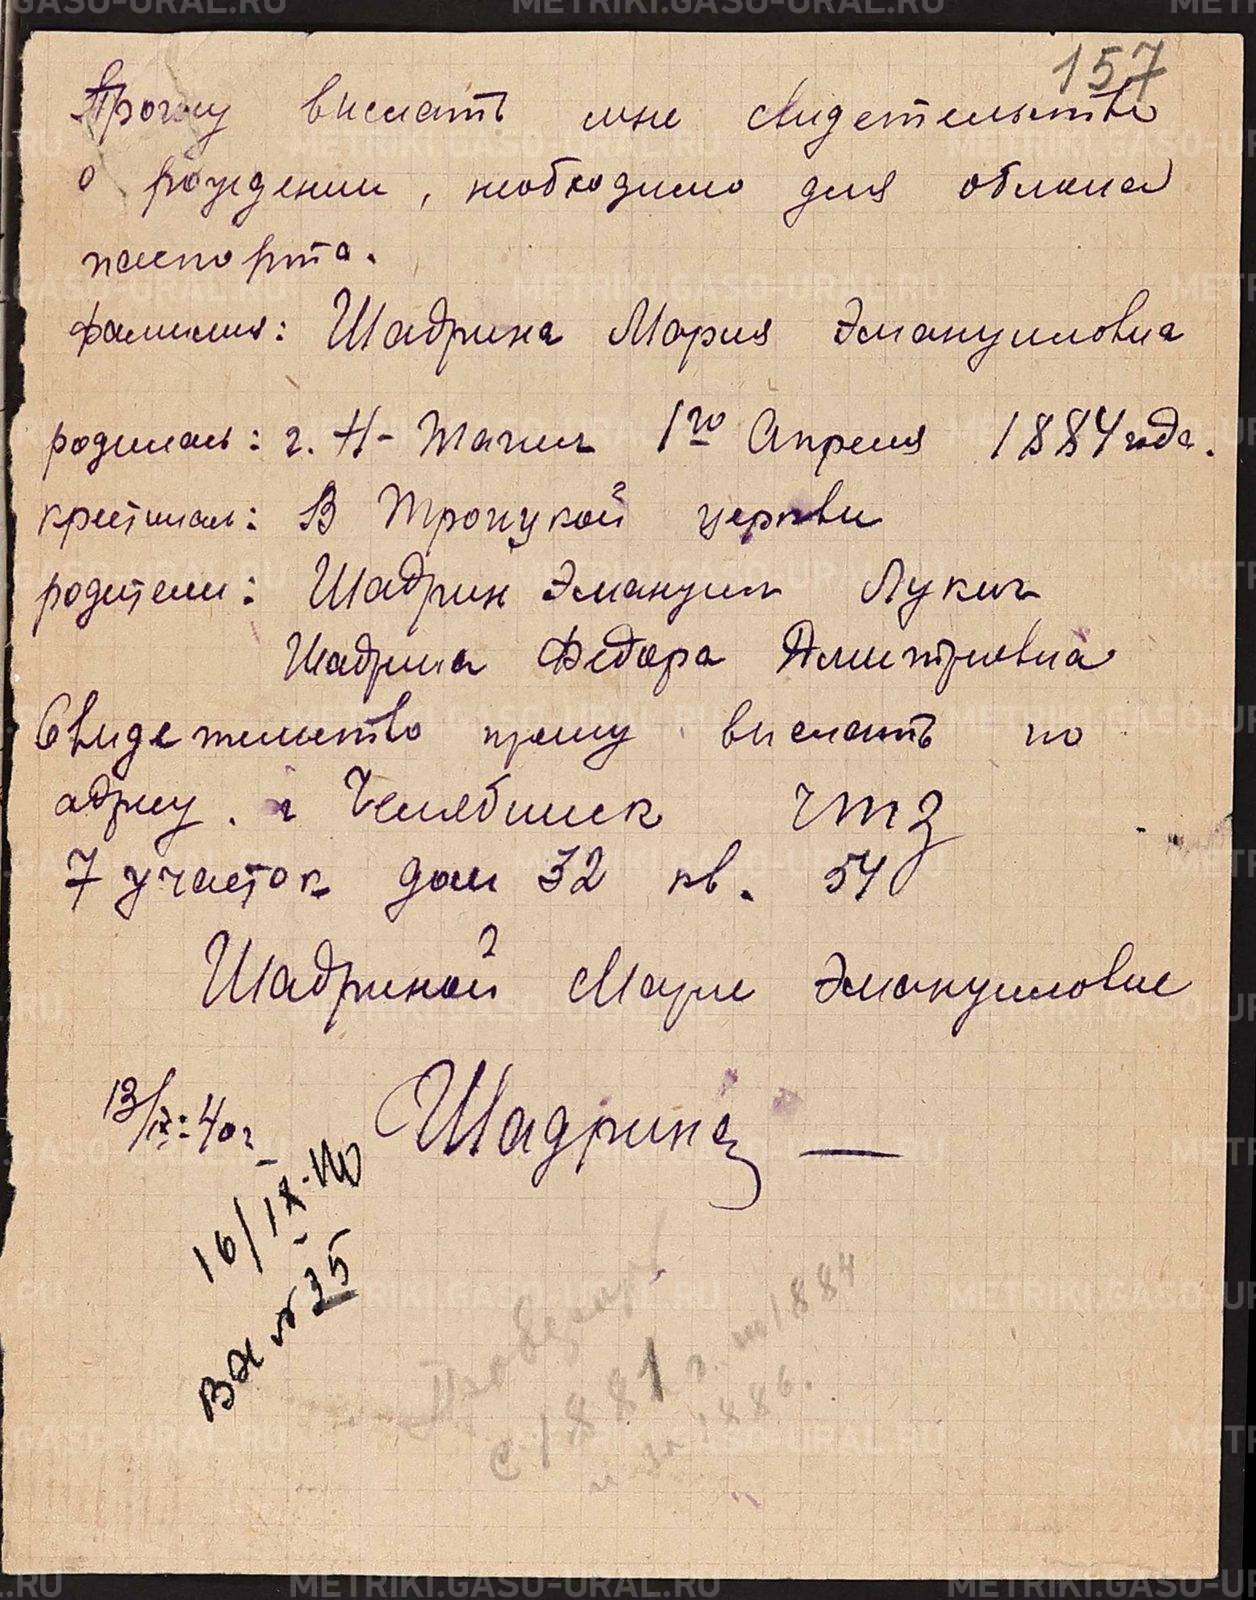 157
Прошу выслать мне свидетельство
о рождении, необходимо для обмена
паспорта.
фамилия: Шадрина Мария Эмануиловна
родилась: г. Н-Тагил 1го Апреля 1884 года.
крестилась: В Троицкой церкви
родители: Шадрин Эмануил Лукич
Шадрина Федора Дмитриевна
Свидетельство прошу выслать по
адресу. г Челябинск ЧТЗ
7 участок дом 32 кв. 54
Шадриной Марие Эмануиловне
13/IX-40г Шадрина —
16/IX-40
Вх № 35
с 1881 г. по 1884
и за 1886.
METRIKI.GASO-URAL.RU